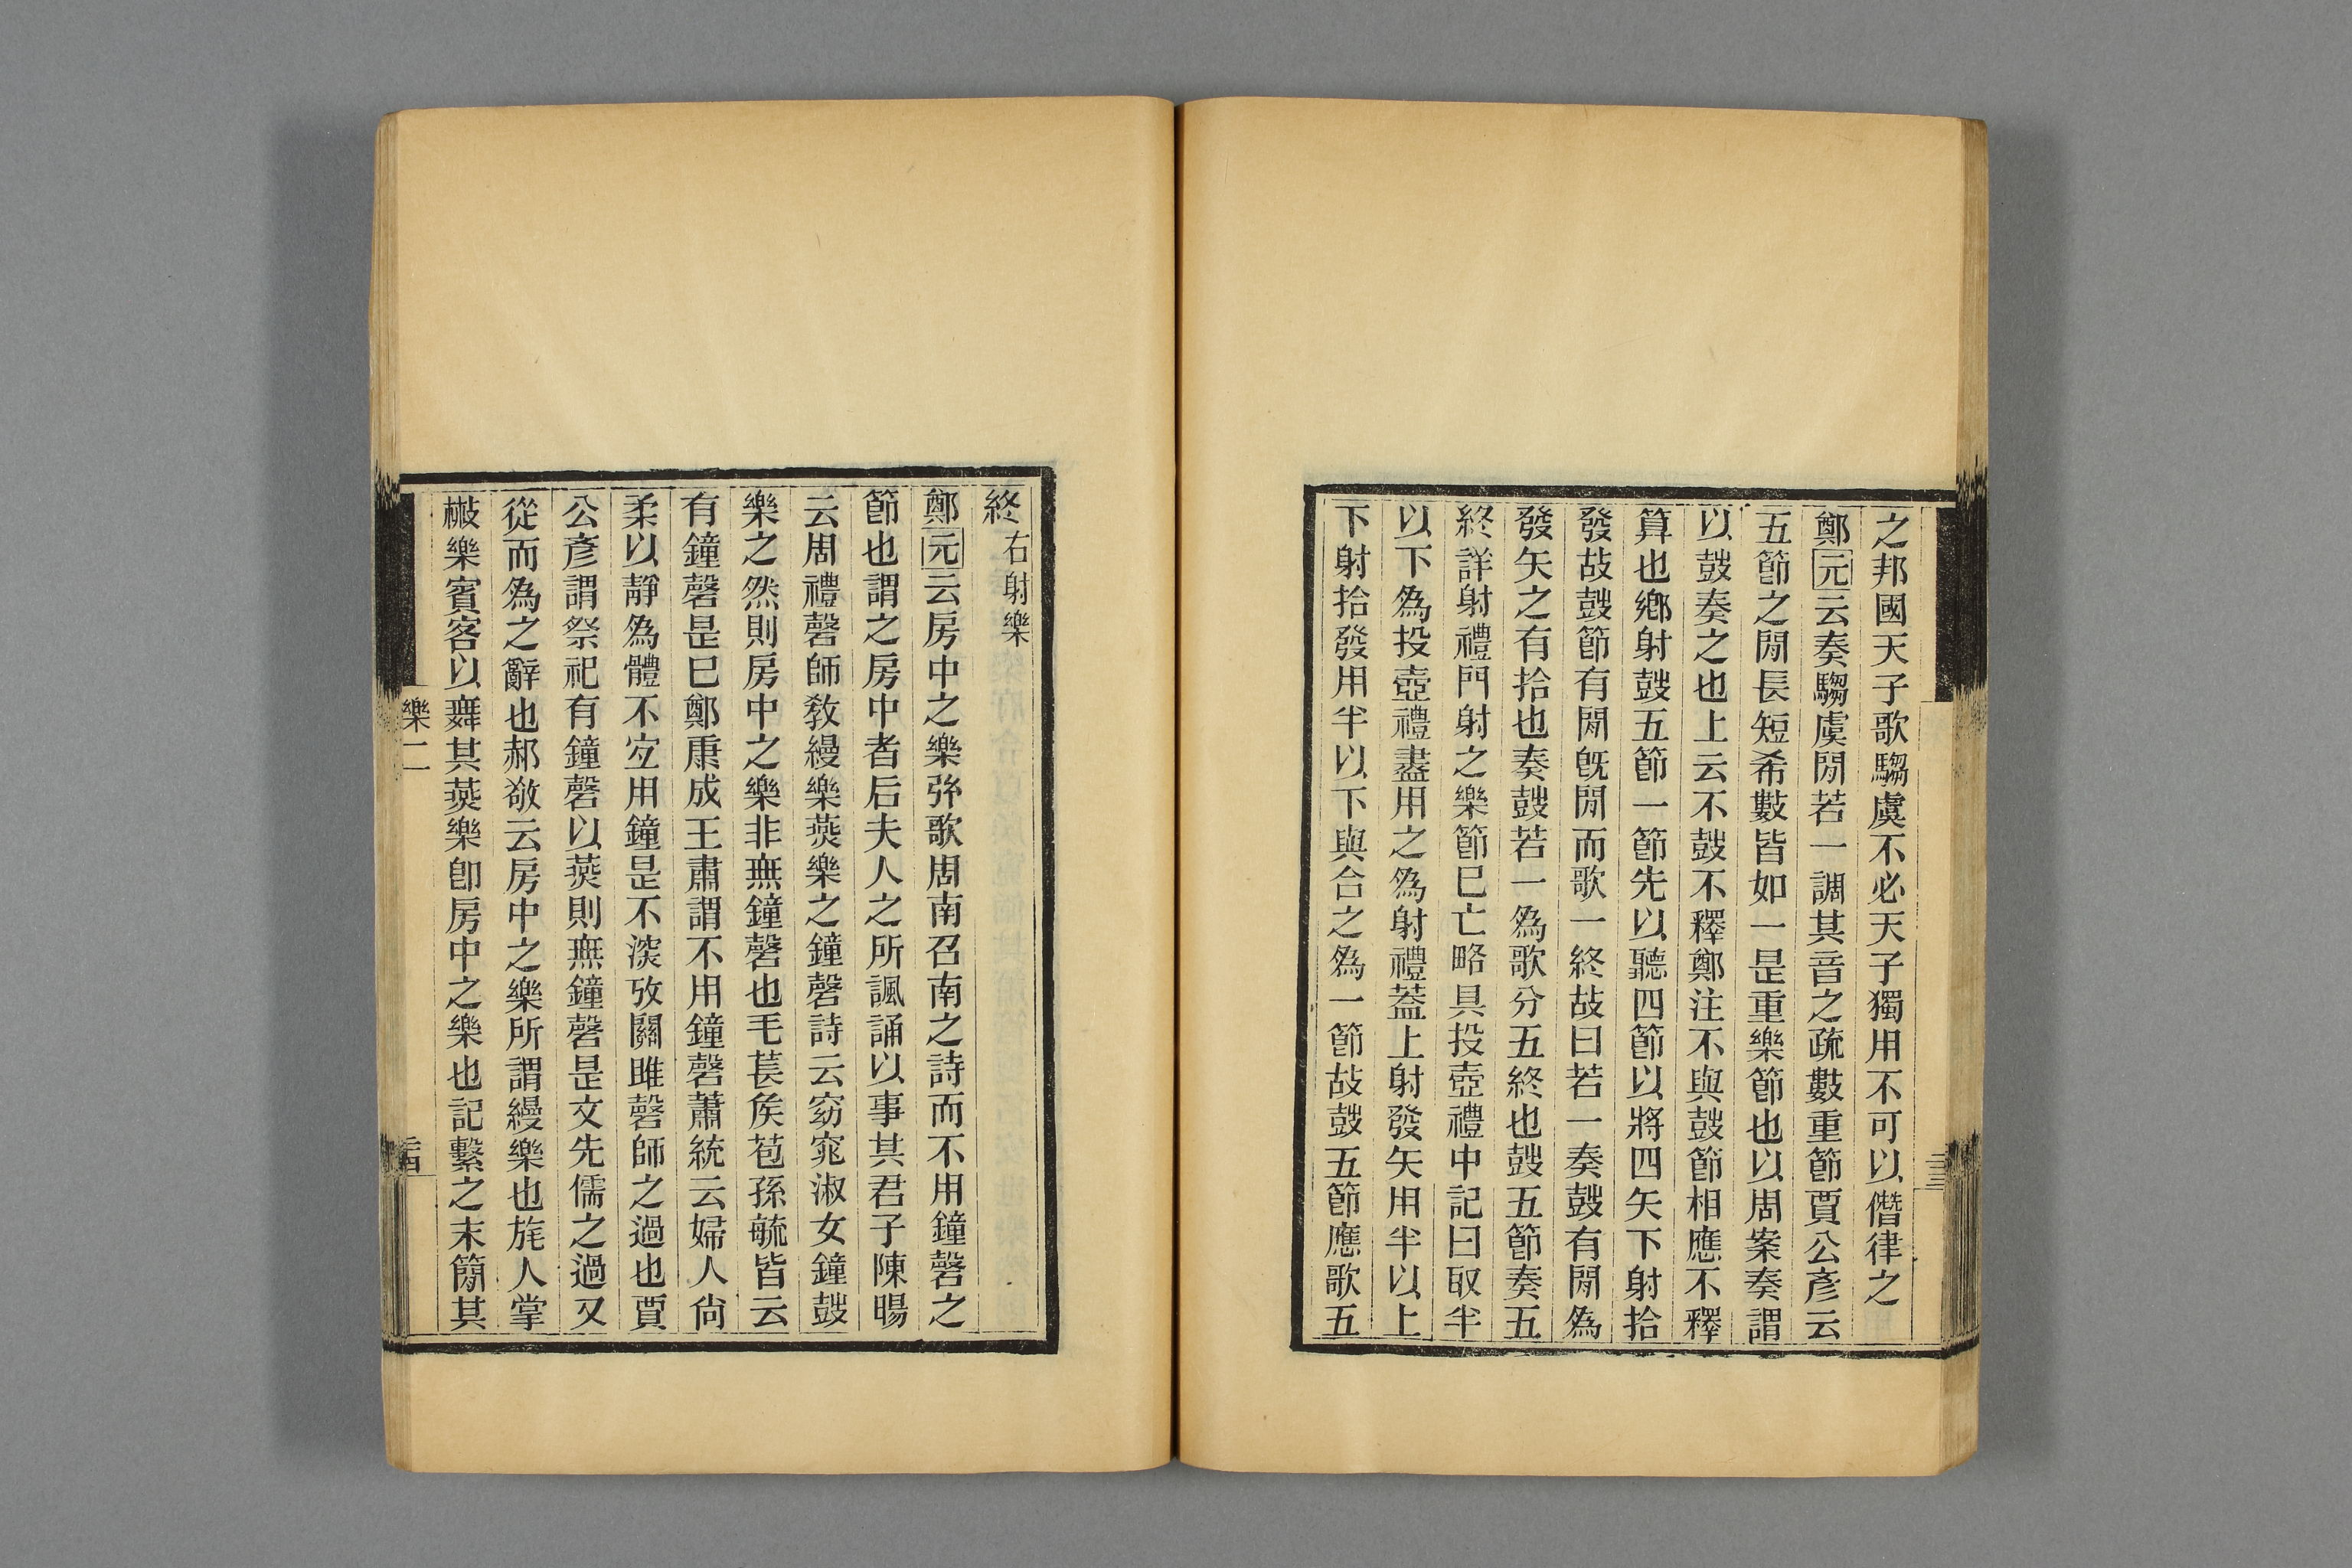 之邦國天子歌騶虞不必天子獨用不可以僭律之
鄭元云奏騶虞閒若一調其音之疏數重節賈公彥云
五節之閒長短希數皆如一是重樂節也以周案奏謂
以鼓奏之也上云不鼓不釋鄭注不與鼓節相應不釋
算也鄕射鼓五節一節先以聽四節以將四矢下射拾
發故鼓節有閒旣閒而歌一終故曰若一奏鼓有閒爲
發矢之有拾也奏鼓若一爲歌分五終也鼓五節奏五
終詳射禮門射之樂節巳亡略具投壺禮中記曰取半
以下爲投壺禮盡用之爲射禮蓋上射發矢用半以上
下射拾發用半以下與合之爲一節故鼓五節應歌五
三三
終右射樂
鄭元云房中之樂弦歌周南召南之詩而不用鐘磬之
節也謂之房中者后夫人之所諷誦以事其君子陳暘
云周禮磬師敎縵樂燕樂之鐘磬詩云窈窕淑女鐘鼓
樂之然則房中之樂非無鐘磬也毛萇矦苞孫毓皆云
有鐘磬是巳鄭康成王肅謂不用鐘磬蕭統云婦人尙
柔以靜爲體不宜用鐘是不深攷關雎磬師之過也賈
公彥謂祭祀有鐘磬以燕則無鐘磬是文先儒之過又
從而爲之辭也郝敬云房中之樂所謂縵樂也旄人掌
敎樂賓客以舞其燕樂卽房中之樂也記繫之末簡其
樂二